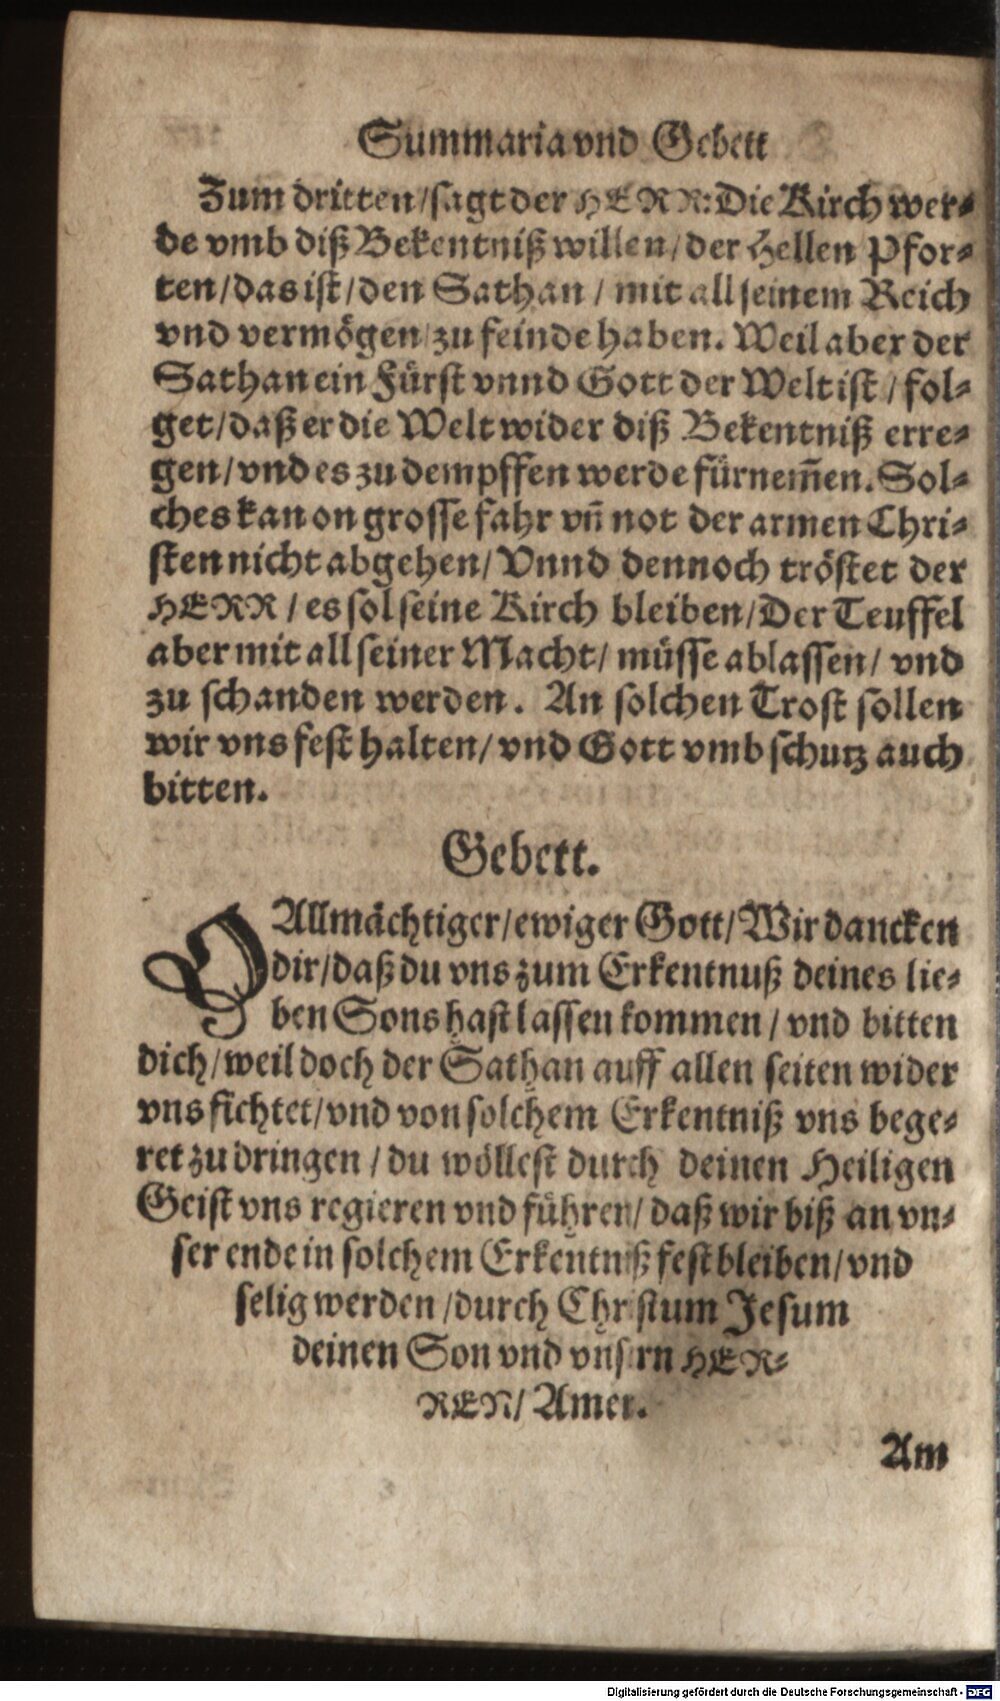 Summaria vnd Gebett
Zum dritten/sagt der HERR: Die Kirch wer-
de vmb diß Bekentniß willen/der Hellen Pfor-
ten/das ist/den Sathan / mit all seinem Reich
vnd vermögen zu feinde haben. Weil aber der
Sathan ein Fürst vnnd Gott der Welt ist / fol-
get/daß er die Welt wider diß Bekentniß erre-
gen/vnd es zu dempffen werde fürnem̃en. Sol-
ches kan on grosse fahr vñ not der armen Chri-
sten nicht abgehen/ Vnnd dennoch tröstet der
HERR / es sol seine Kirch bleiben/Der Teuffel
aber mit all seiner Macht/ müsse ablassen/ vnd
zu schanden werden. An solchen Trost sollen
wir vns fest halten/ vnd Gott vmb schutz auch
bitten.
Gebett.
O Allmächtiger/ewiger Gott/ Wir dancken
dir/daß du vns zum Erkentnuß deines lie-
ben Sons hast lassen kommen / vnd bitten
dich/weil doch der Sathan auff allen seiten wider
vns fichtet/vnd von solchem Erkentniß vns bege-
ret zu dringen / du wöllest durch deinen Heiligen
Geist vns regieren vnd führen/ daß wir biß an vn-
ser ende in solchem Erkentniß fest bleiben/vnd
selig werden /durch Christum Jesum
deinen Son vnd vnsern HER-
REN/ Amen.
Am
Digitalisierung gefördert durch die Deutsche Forschungsgemeinschaft - DFG